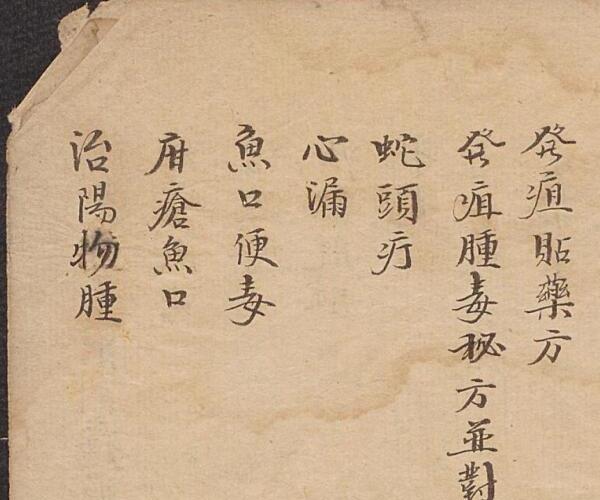 発疽貼藥方
発疽腫毒秘方並對
蛇頭疔
心漏
魚口便毒
疳瘡魚口
治陽物腫